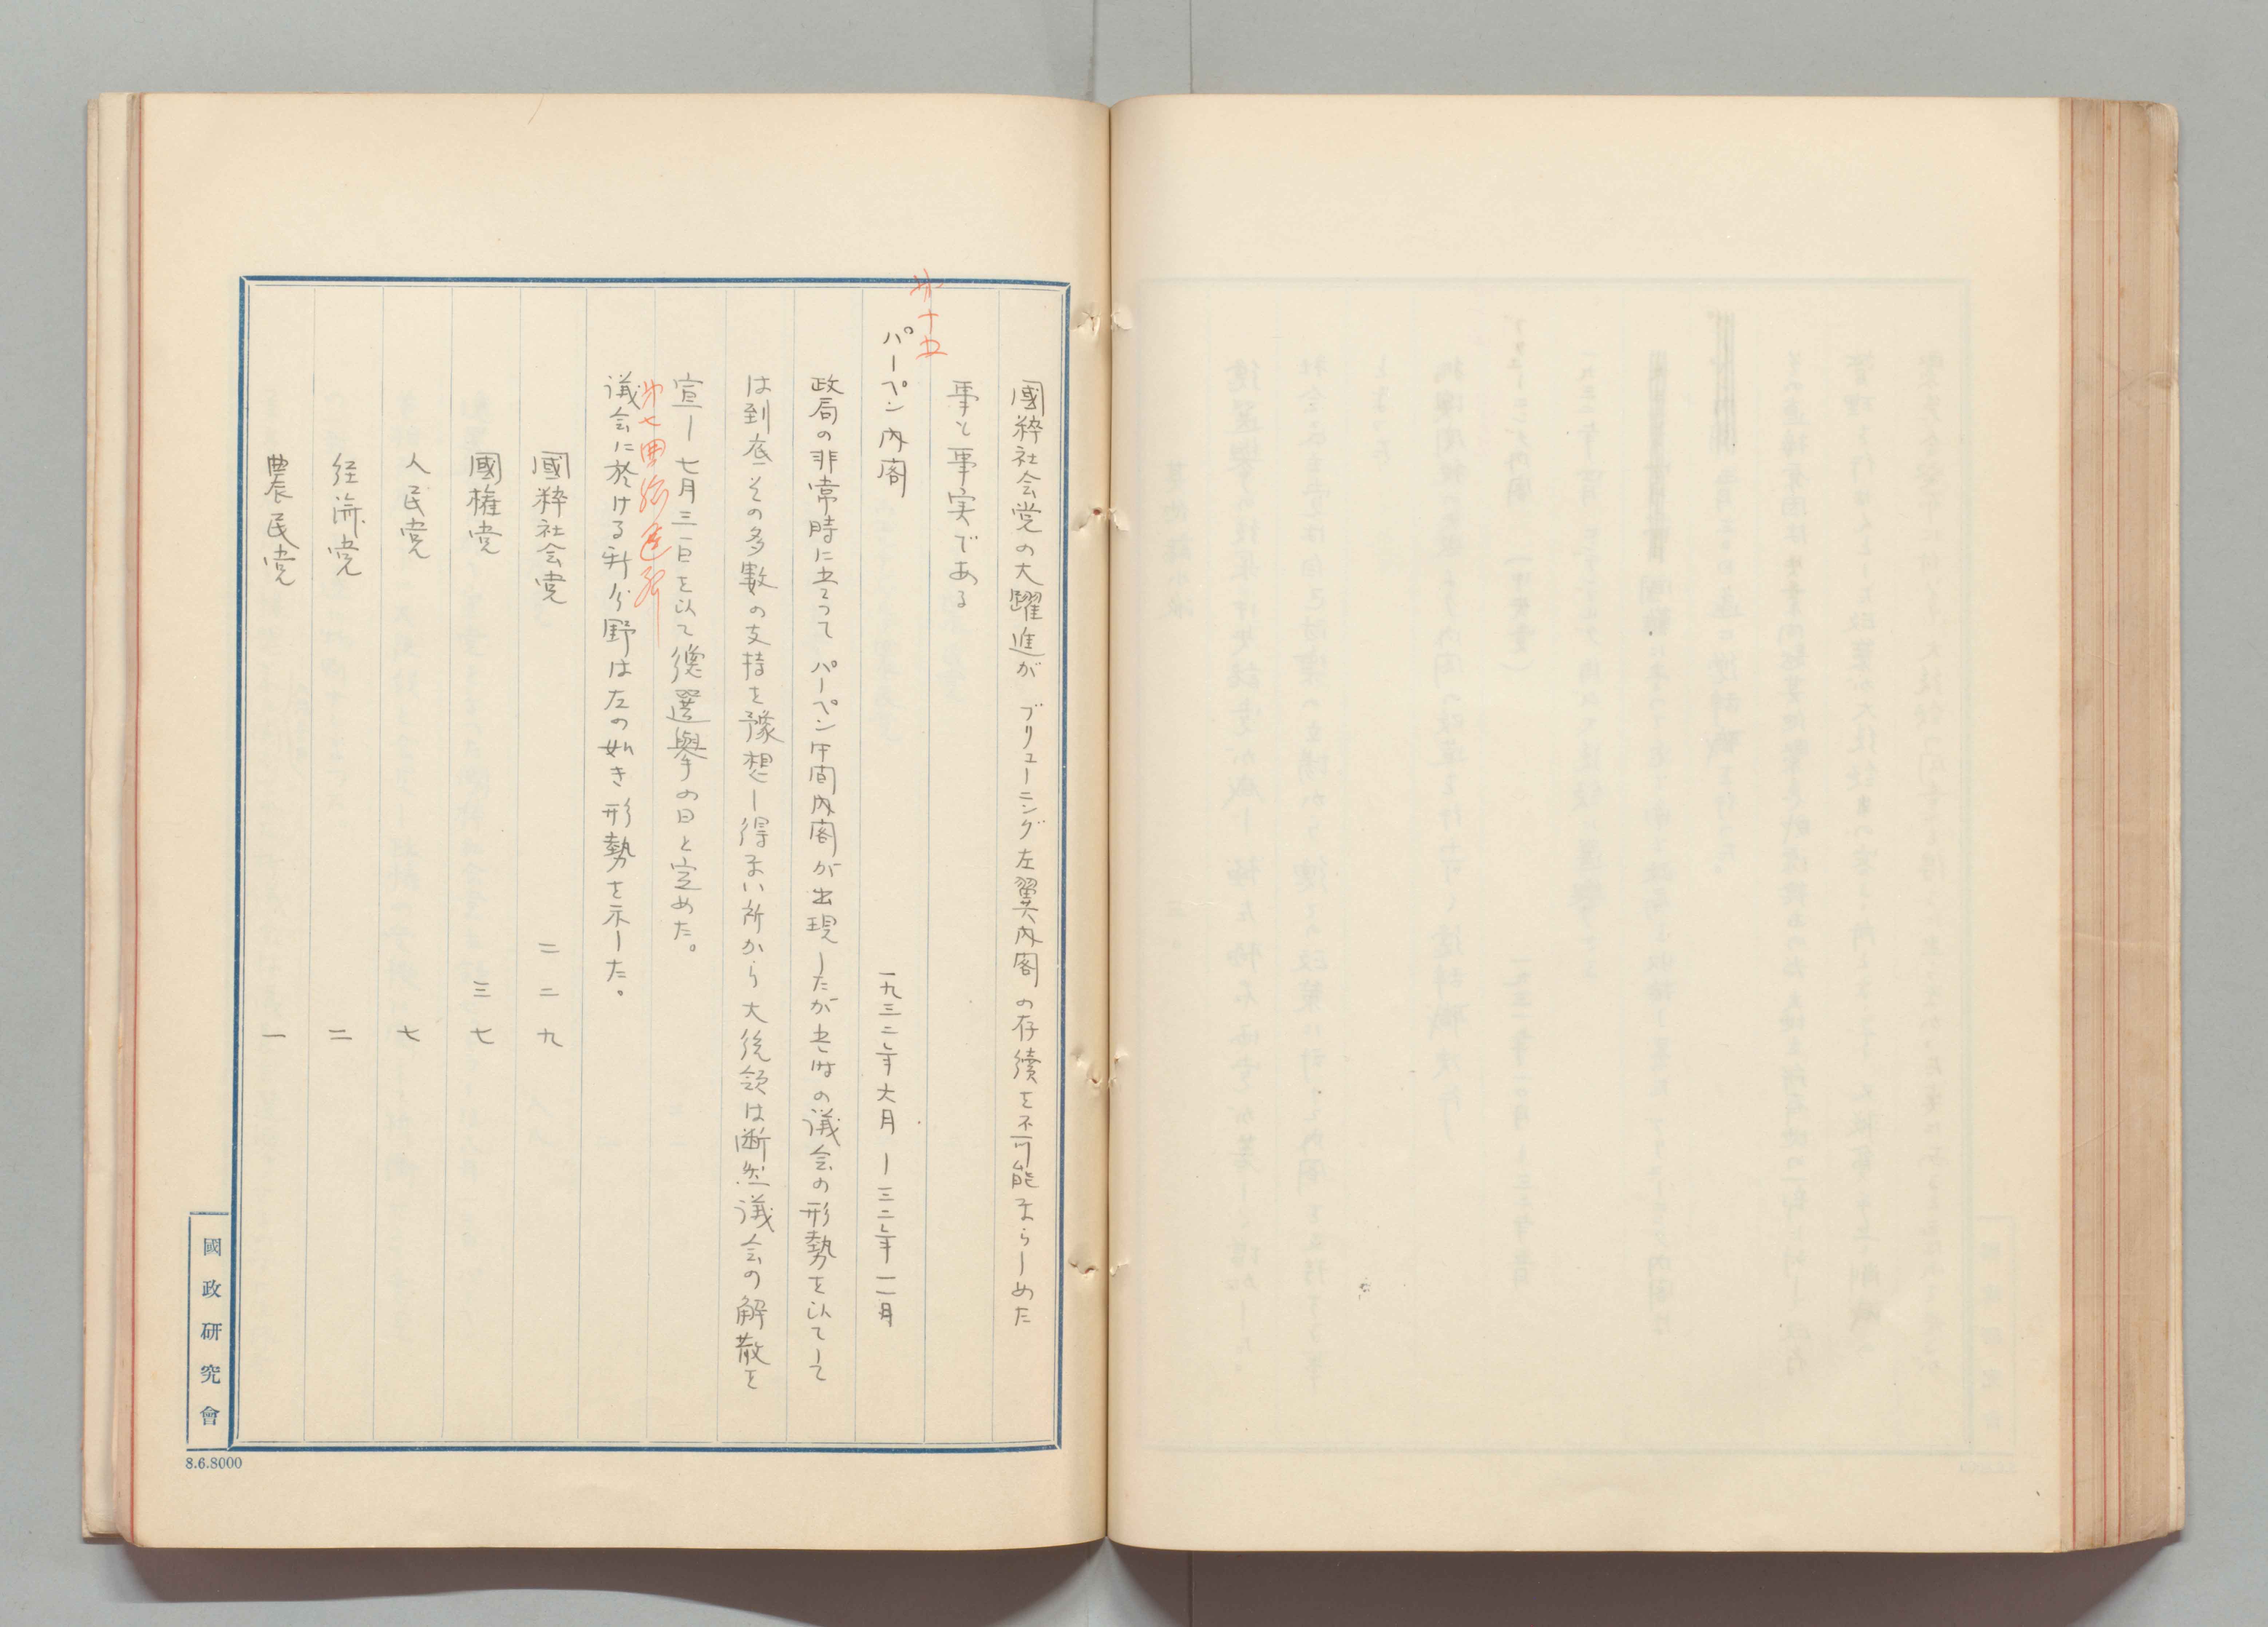 國粹社会党の大躍進が ブリューニング左翼内閣の存續を不可能ならしめた
事も事実である
第十五
パーペン内閣 一九三二年六月ー三二年一一月
政局の非常時に立って パーペン中間内閣が出現したが の議会の形勢を以てして
は到底その多數の支持を豫想し得ない所から大統領は断然議会の解散を
宣し 七月三一日を以て總選擧の日と定めた。
第七回總選挙
議会に於ける新分野は左の如き形勢を示した。
國粹社会党 二二九
國権党 三七
人民党 七
経済党 二
農民党 一
國政研究會
8.6.8000